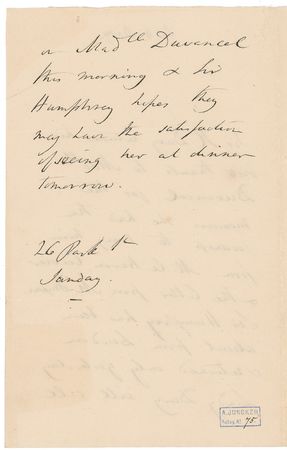 or Mad^lle Duvancel
this morning & Sir
Humphrey hopes they
may have the satisfaction
of seeing her at dinner
tomorrow.
26 Park St
Sunday.
A. JUNCKER
75.